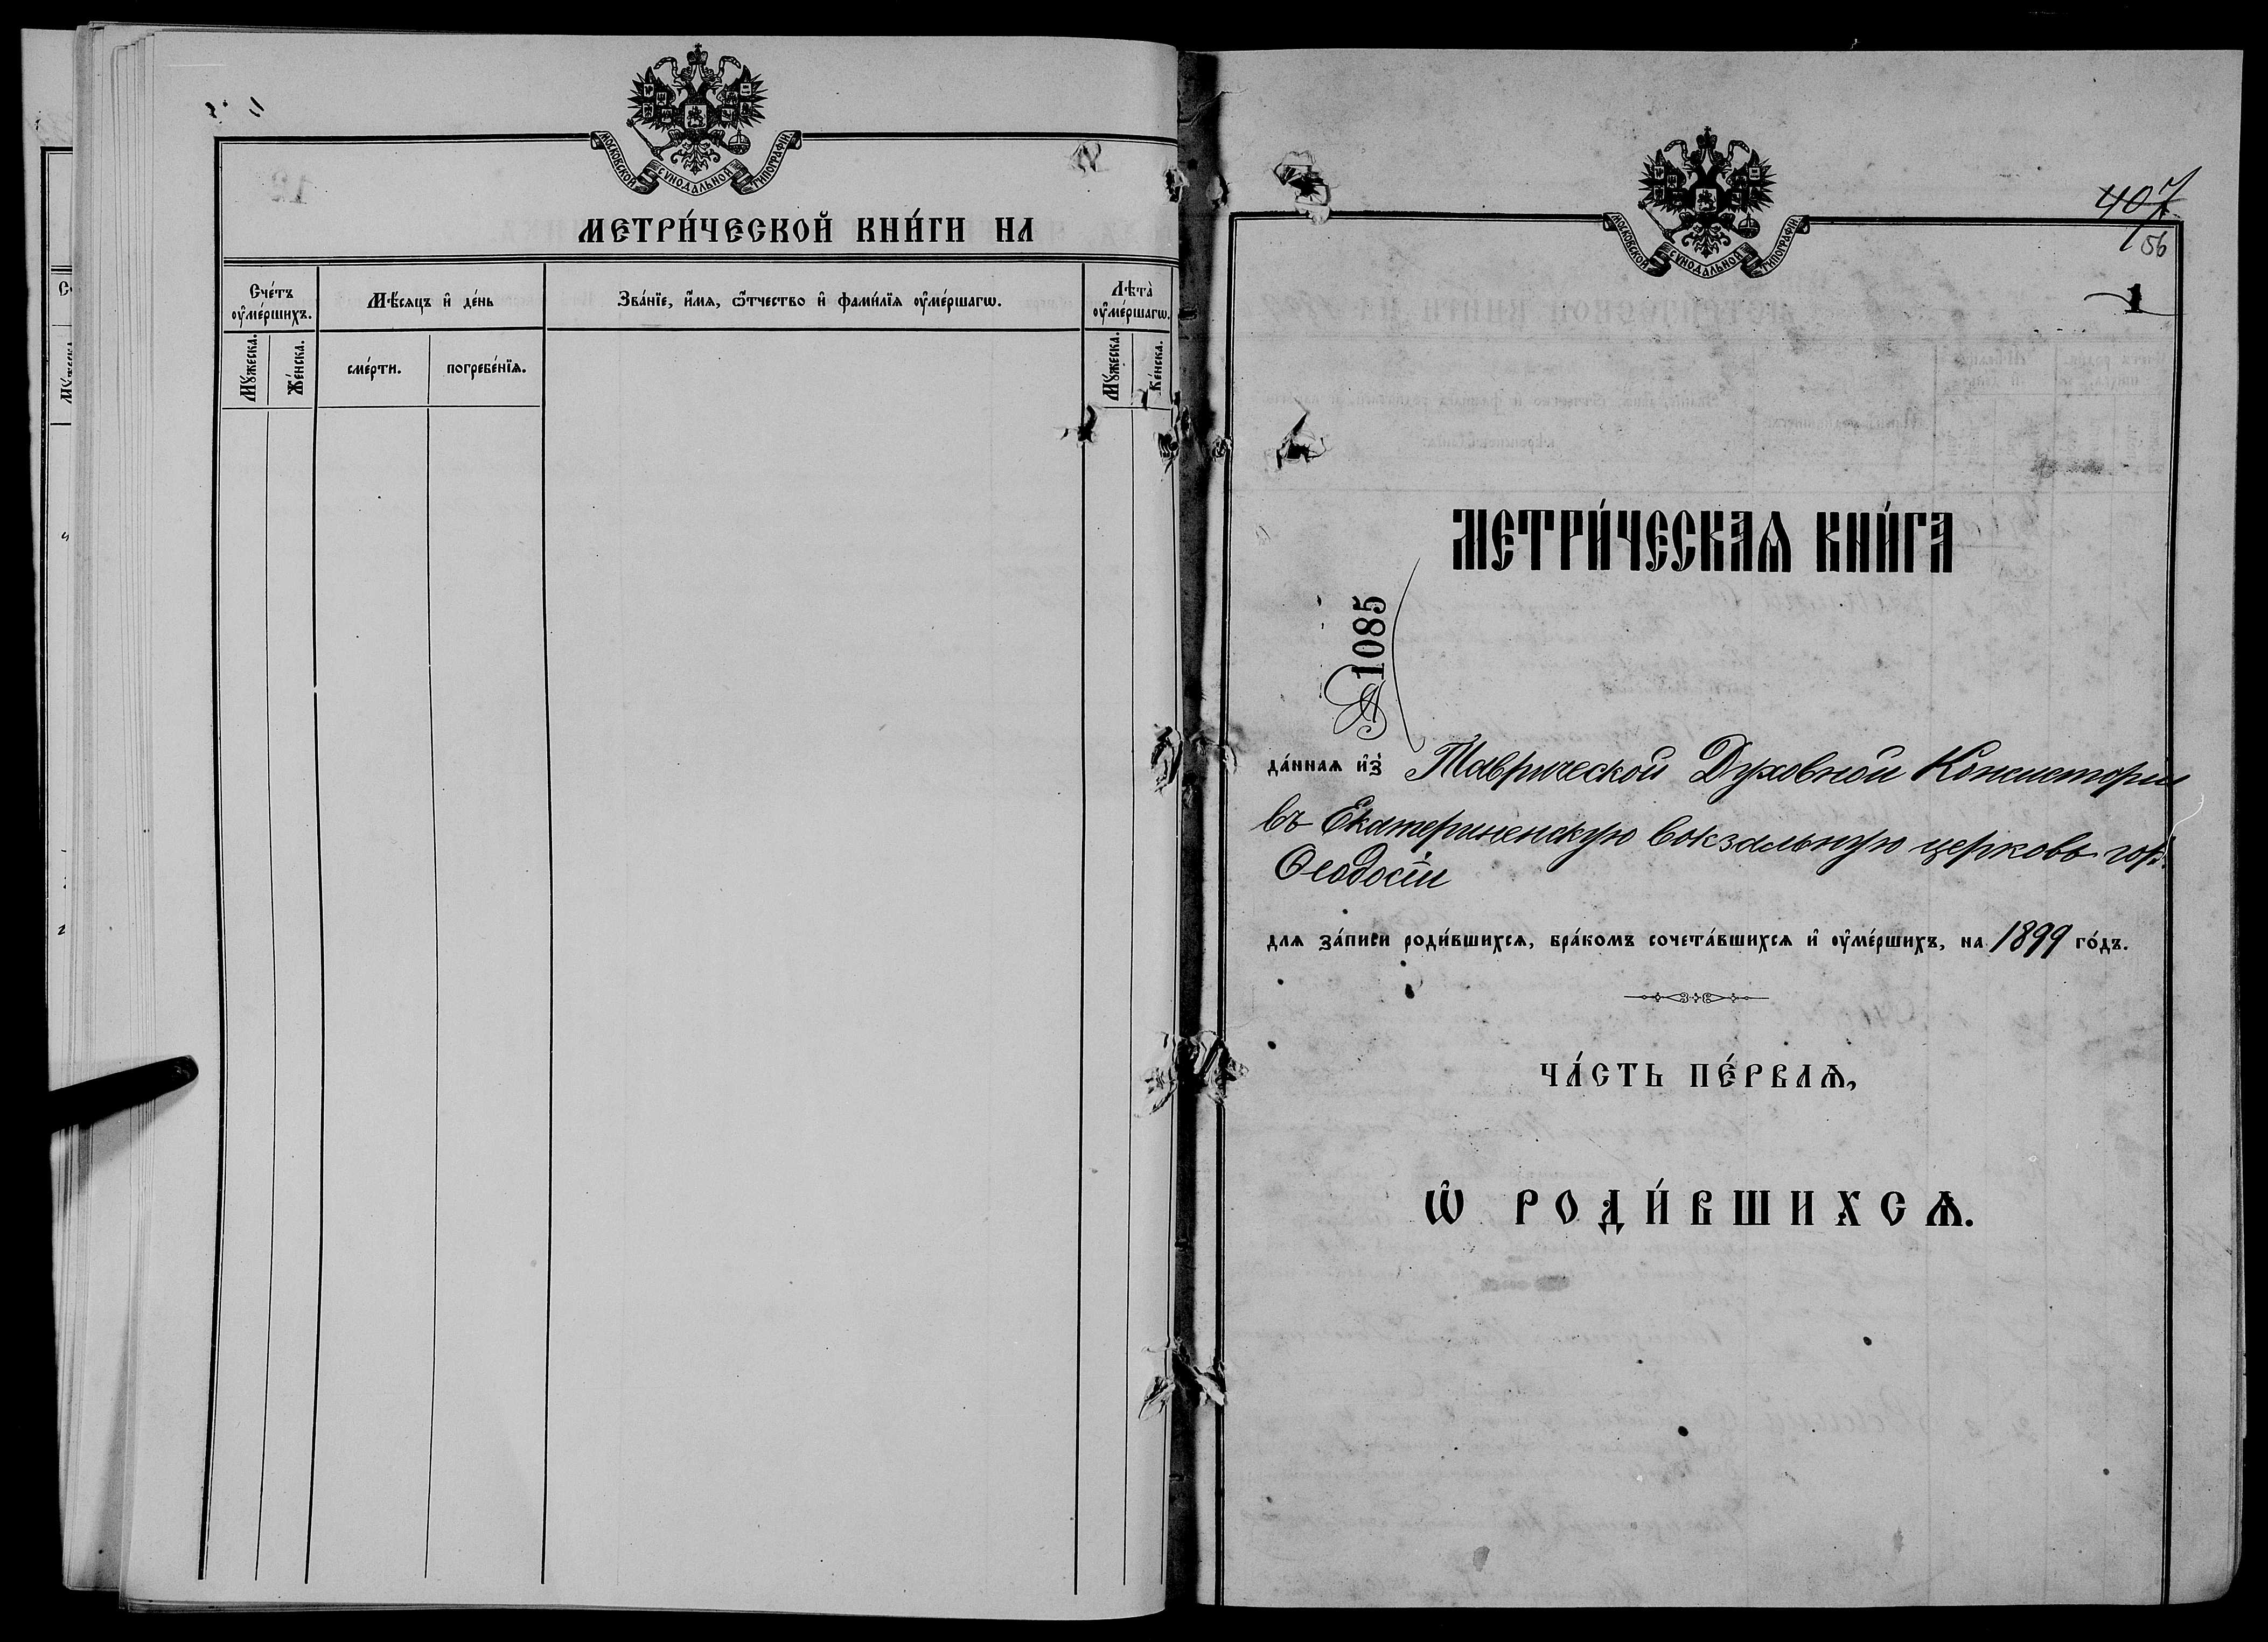 МОСКОВСКОЙ СѴНОДАЛЬНОЙ ТИПОГРАФІИ.
МЕТРИ́ЧЕСКОЙ КНИ́ГИ НА
Сче́тъ ᲂу҆ме́ршихъ.
Мѣ́сяцъ и҆ де́нь
Зва́нїе, и҆́мѧ, ѻ҆́тчество и҆ фами́лїѧ ᲂу҆ме́ршагѡ.
Лѣта̀ ᲂу҆ме́ршагѡ.
Мꙋ́жеска.
Же́нска.
сме́рти.
погребе́нїѧ.
Мꙋ́жеска.
Же́нска.
МОСКОВСКОЙ СѴНОДАЛЬНОЙ ТИПОГРАФІИ.
407
56
1
МЕТРИ́ЧЕСКАѦ КНИ́ГА
1085
да́ннаѧ и҆з̾ Таврической Духовной Консисторіи
въ Екатериненскую вокзальную церковь гор.
Ѳеодосіи
длѧ за́писи роди́вшихсѧ, бра́комъ сочета́вшихсѧ и҆ ᲂу҆ме́ршихъ, на 1899 го́дъ.
ЧА́СТЬ ПЕ́РВАѦ,
Ѡ҆ РОДИ́ВШИХСѦ.